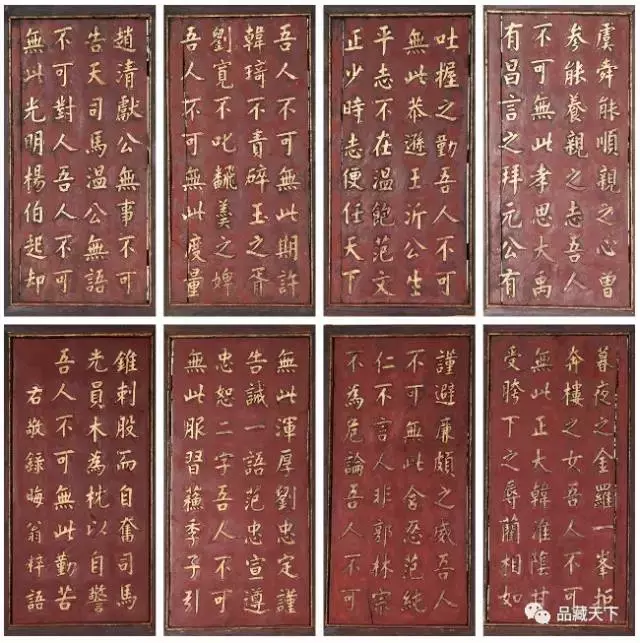 虞舜能順親之心曽
參能養親之志吾人
不可無此孝思大禹
有昌言之拜元公有
吐握之勤吾人不可
無此恭遜王沂公生
平志不在温飽范文
正少時志便任天下
吾人不可無此期許
韓琦不責碎玉之胥
劉寛不叱翻羹之婢
吾人不可無此度量
趙清獻公無事不可
告天司馬温公無語
不可對人吾人不可
無此光明楊伯起却
暮夜之金羅一峯拒
奔樓之女吾人不可
無此正大韓淮陰甘
受胯下之辱藺相如
謹避廉頗之威吾人
不可無此含忍范純
仁不言人非郭林宗
不為危論吾人不可
無此渾厚劉忠定謹
告誡一語范忠宣遵
忠恕二字吾人不可
無此服習蘇季子引
錐刺股而自奮司馬
光員木為枕以自警
吾人不可無此勤苦
右敬録晦翁粹語
品藏天下